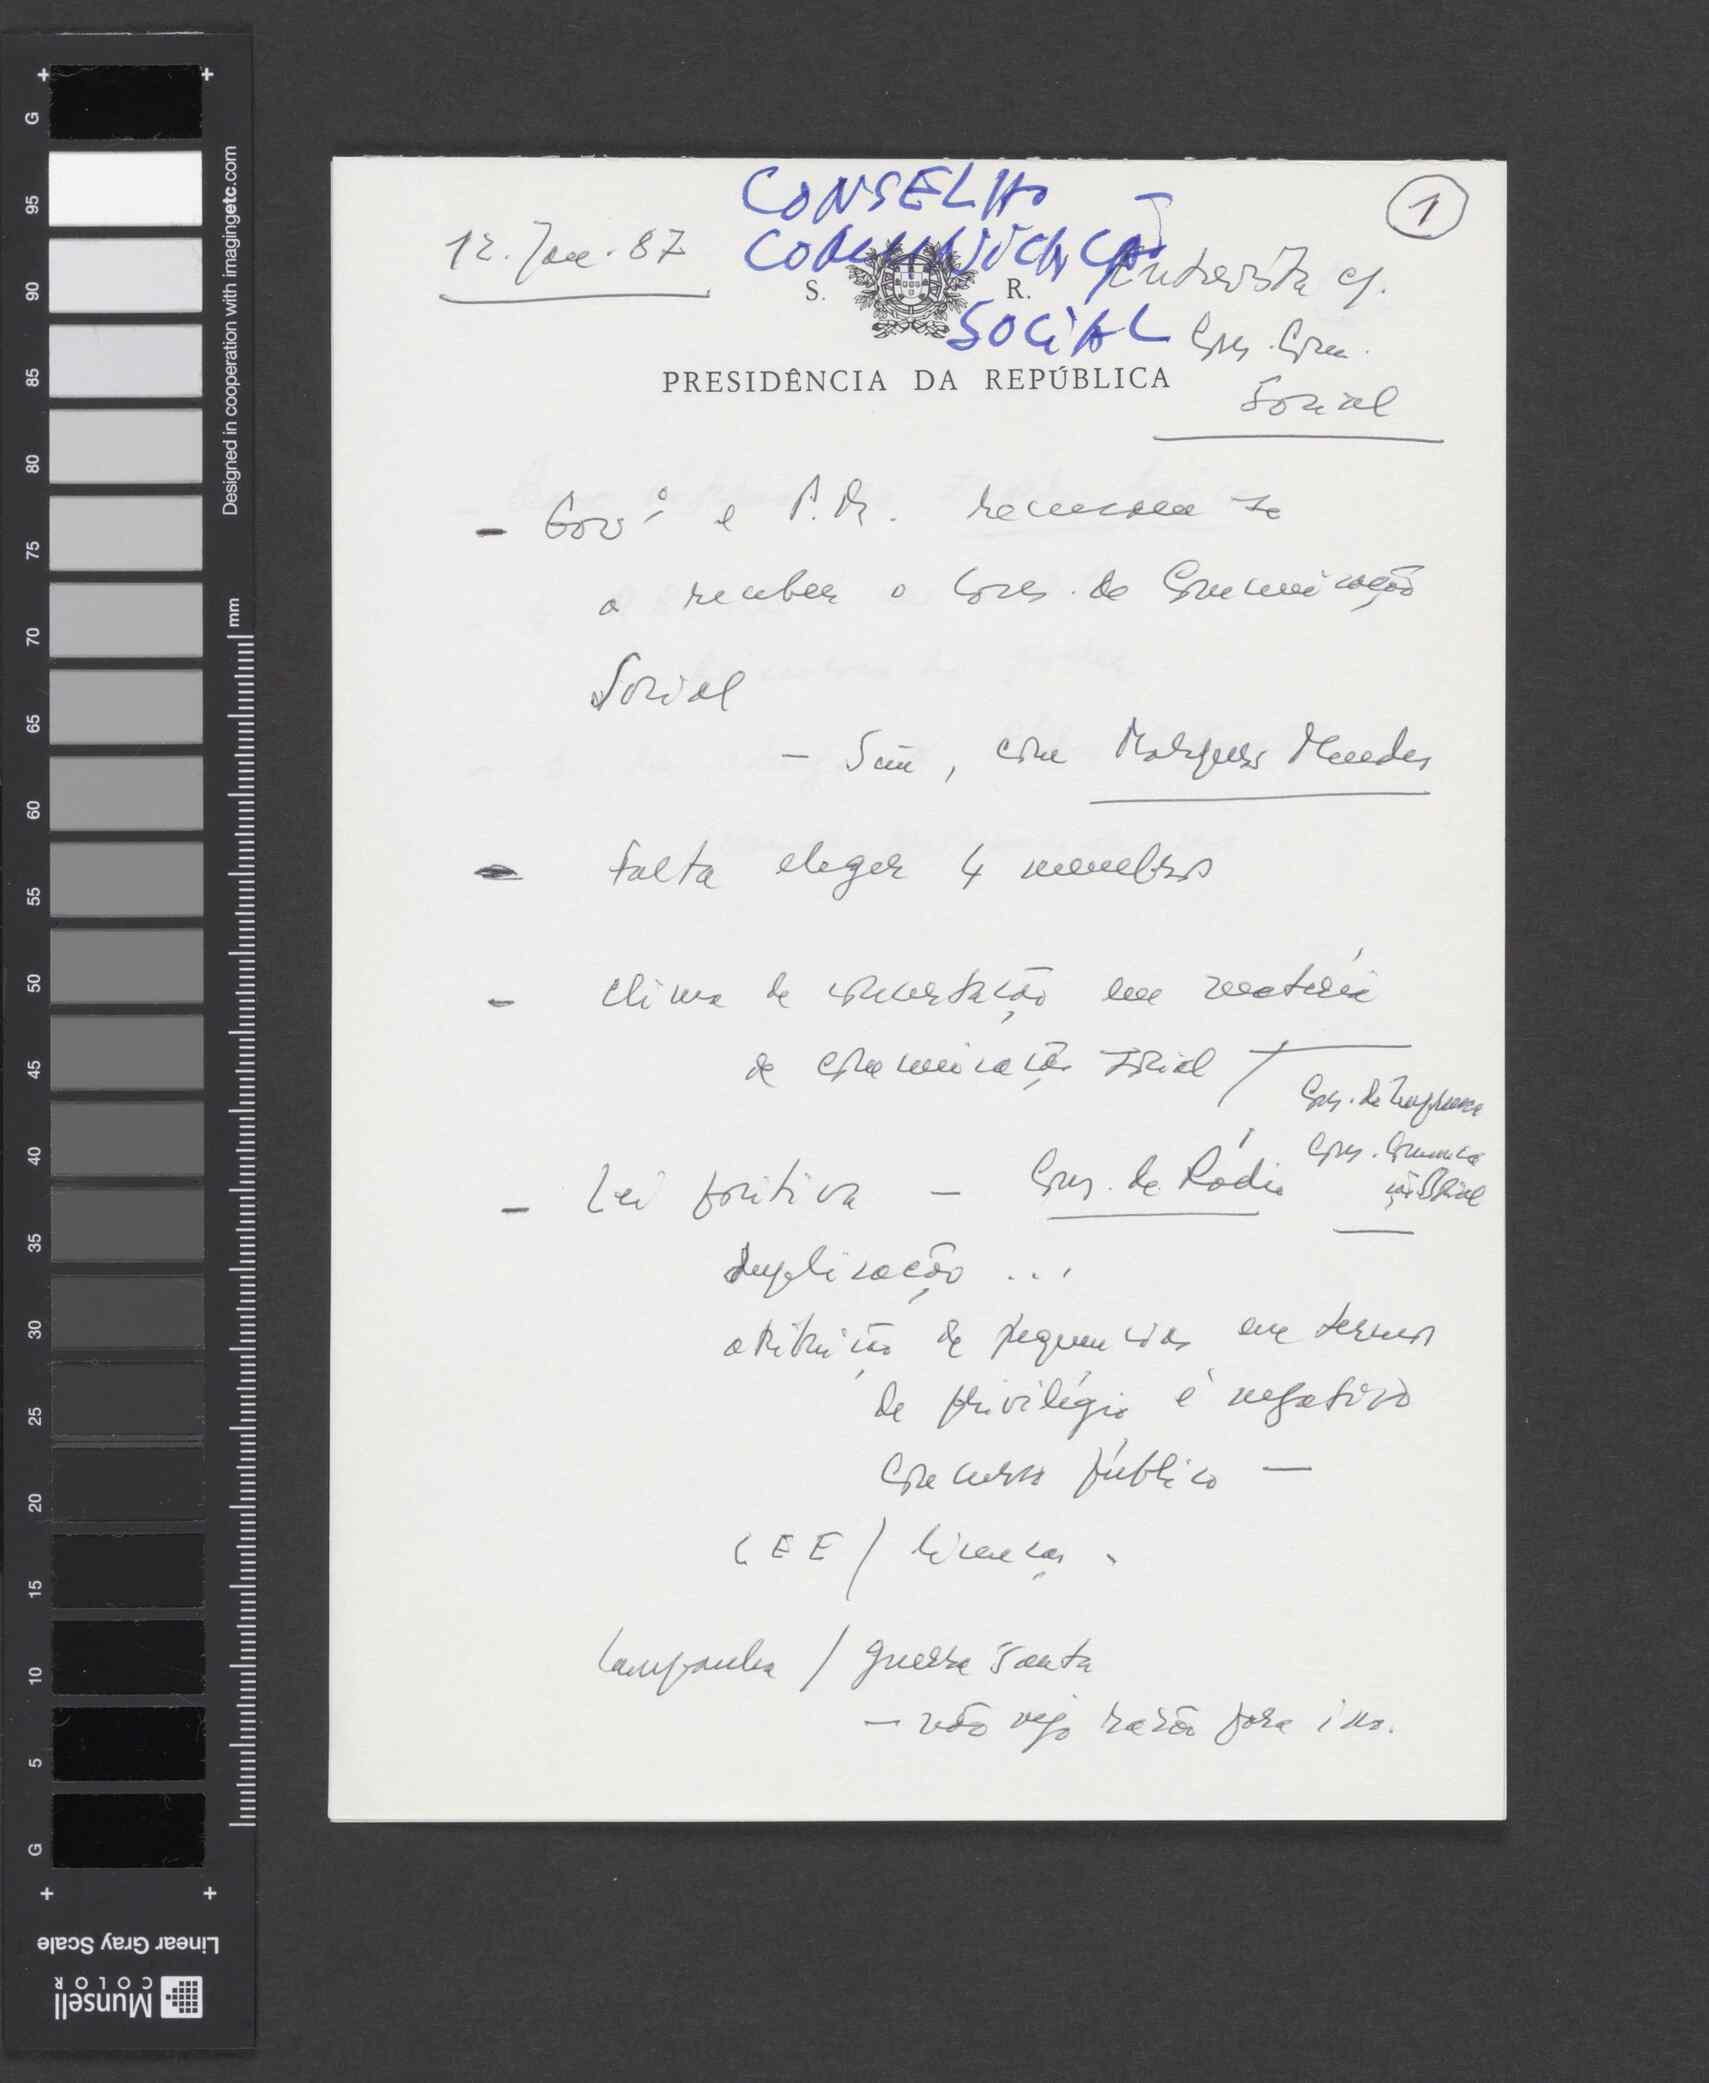 CONSELHO
COMUNICAÇÃO
SOCIAL
1
12. Jan. 87
S. R.
PRESIDÊNCIA DA REPÚBLICA
Entrevista c/.
Cons. Com.
Social
- Gov.º e P.M. recusam-se
a receber o Cons. de Comunicação
Social
- Sim, com Marques Mendes
- falta eleger 4 membros
- clima de concertação em matéria
de comunicação social /
Cons. de Imprensa
Cons. Comunica
ção Social
- Lei positiva - Cons. de Rádio
duplicação ...
atribuição de frequências em termos
de privilégio é negativo
Concurso público -
CEE / licenças.
Campanha / guerra santa
- não vejo razão para isso.
G
95
90
85
80
75
70
65
60
55
50
45
40
35
30
25
20
15
10
5
G
mm
Designed in cooperation with imagingetc.com
Linear Gray Scale
Munsell
COLOR